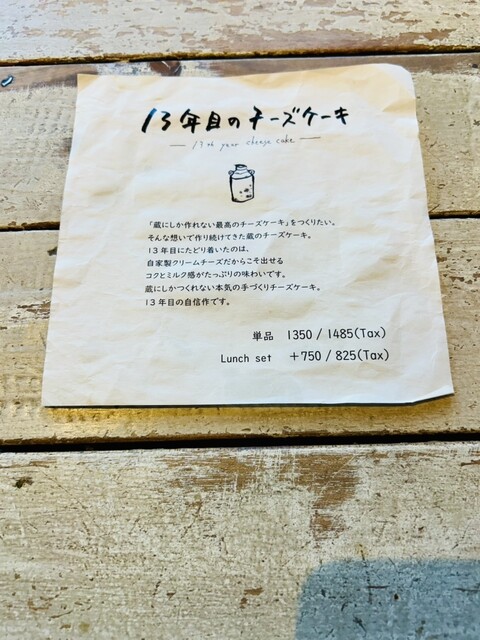 13年目のチーズケーキ
13th year cheese cake
「蔵にしか作れない最高のチーズケーキ」をつくりたい。
そんな想いで作り続けてきた蔵のチーズケーキ。
13年目にたどり着いたのは、
自家製クリームチーズだからこそ出せる
コクとミルク感がたっぷりの味わいです。
蔵にしかつくれない本気の手づくりチーズケーキ。
13年目の自信作です。
単品 1350 / 1485(Tax)
Lunch set +750 / 825(Tax)